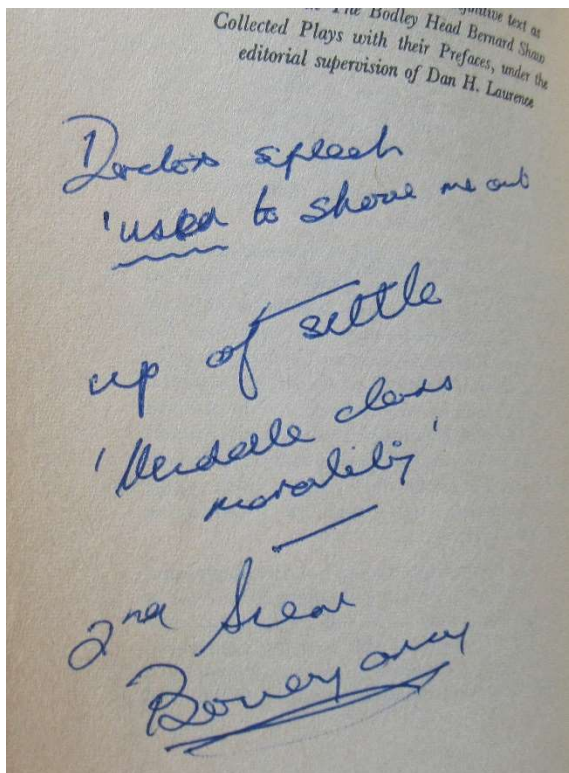 text as
The Bodley Head Bernard Shaw
Collected Plays with their Prefaces, under the
editorial supervision of Dan H. Laurence
speech
'used to shove me out
up of settle
'Middle class
morality'
2nd